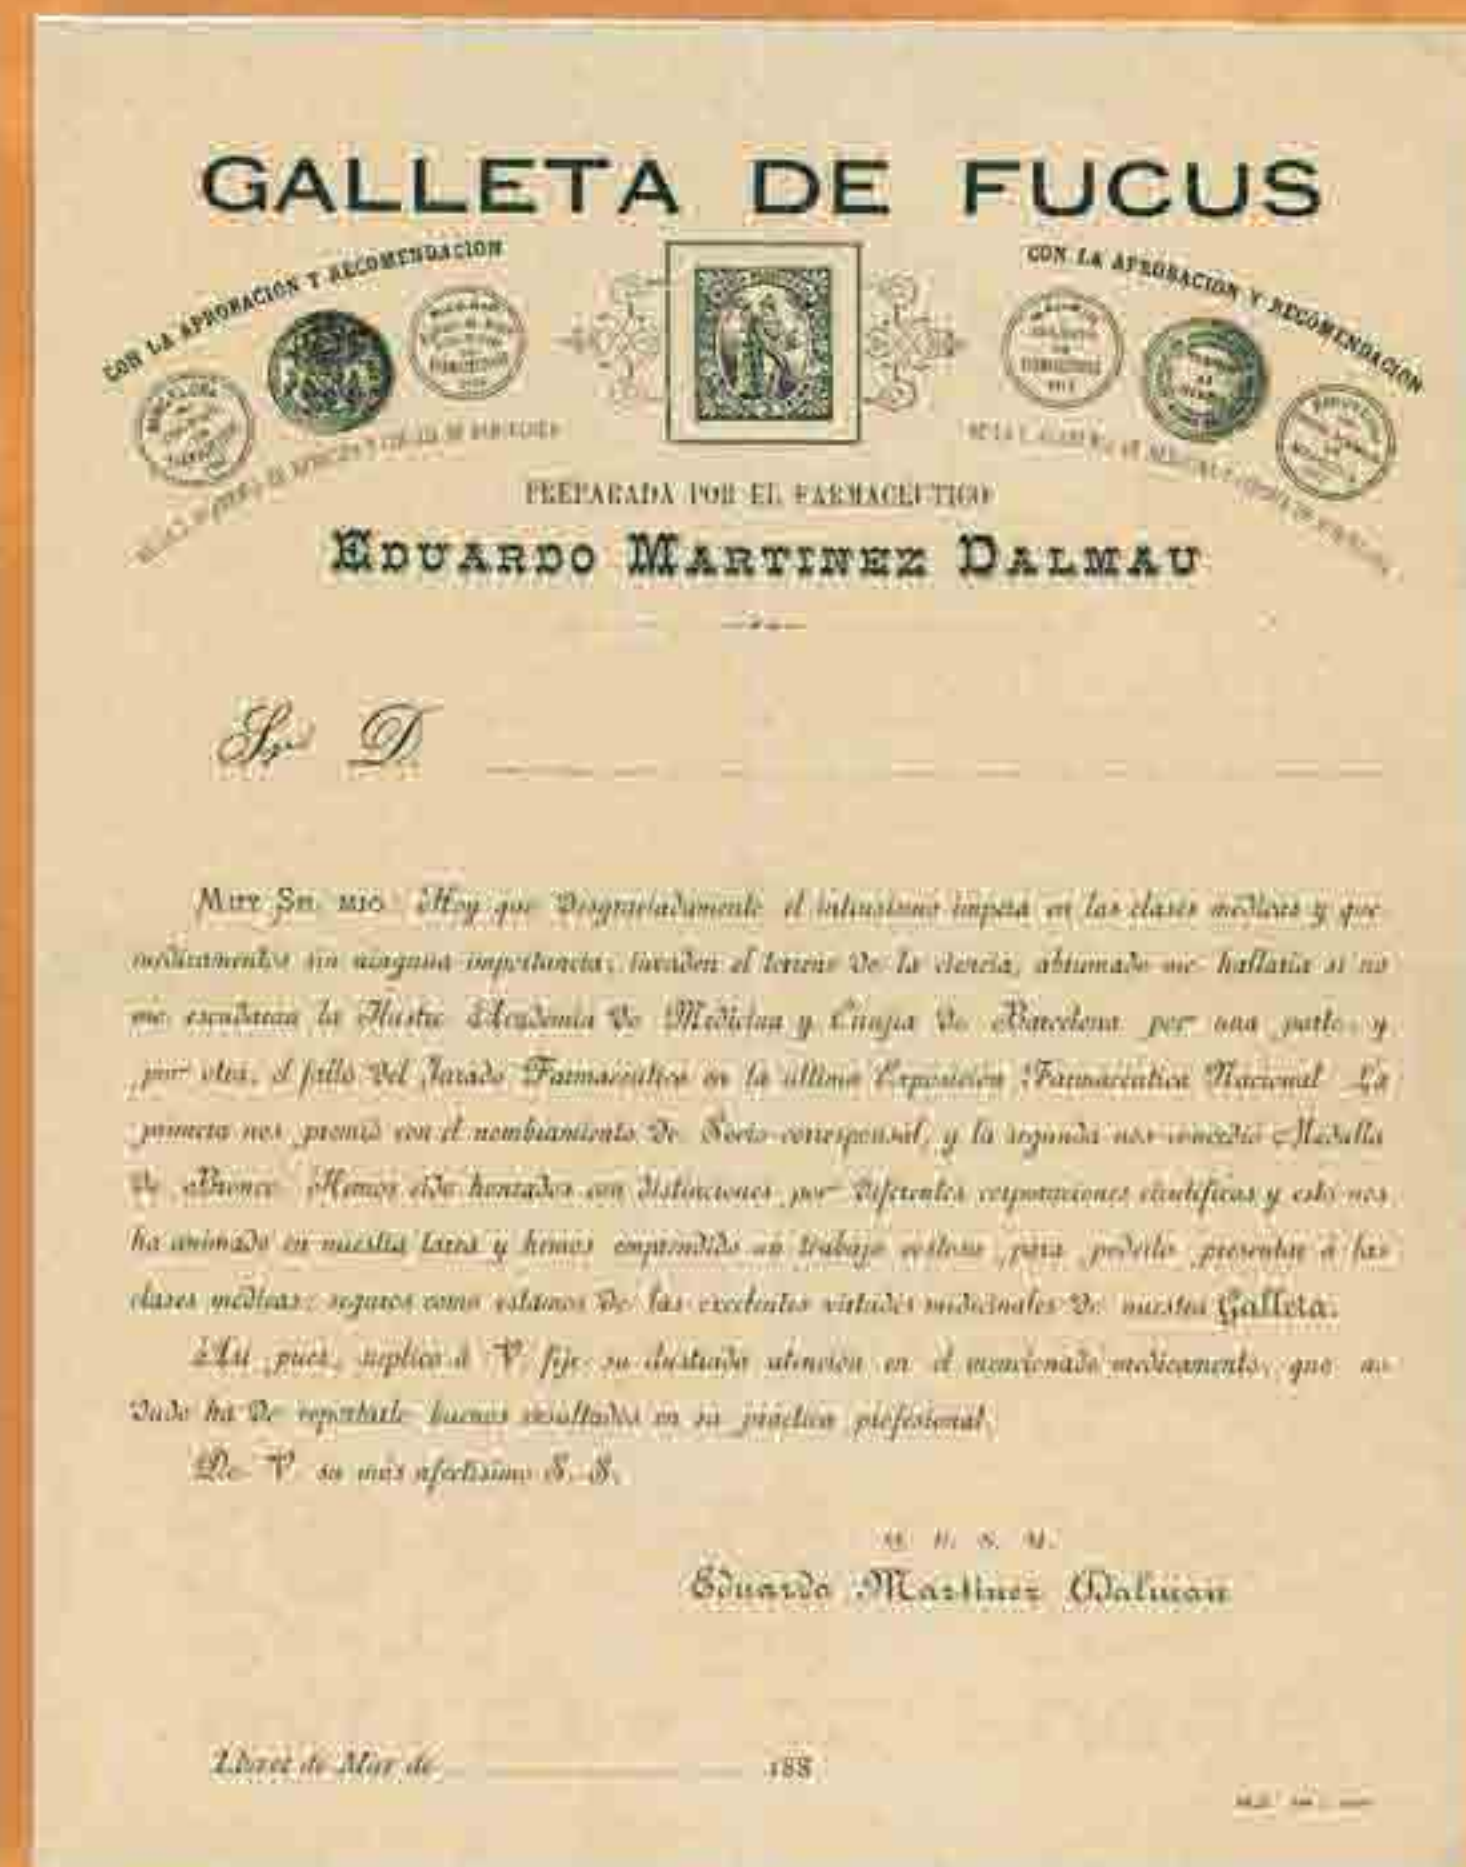 GALLETA DE FUCUS
CON LA APROBACION Y RECOMENDACION
CON LA APROBACION Y RECOMENDACION
BARCELONA
MADRID
MADRID
DE LA R. ACADEMIA DE MEDICINA Y CIRUGIA DE BARCELONA
DE LA R. ACADEMIA DE MEDICINA Y CIRUGIA DE BARCELONA
PREPARADA POR EL FARMACEUTICO
EDUARDO MARTINEZ DALMAU
Sr. D.
MUY SR. MIO: Hoy que desgraciadamente el intrusismo impera en las clases médicas y que
medicamentos sin ninguna importancia, invaden el terreno de la ciencia, abrumado me hallaria si no
me escudaran la Ilustre Academia de Medicina y Cirujia de Barcelona por una parte, y
por otra, el fallo del Jurado Farmacéutico en la última Exposición Farmacéutica Nacional. La
primera nos premió con el nombramiento de Socio corresponsal, y la segunda nos concedió Medalla
de Bronce. Hemos sido honrados con distinciones por diferentes corporaciones científicas y esto nos
ha animado en nuestra tarea y hemos emprendido un trabajo costoso para poderlo presentar á las
clases médicas: seguros como estamos de las excelentes virtudes medicinales de nuestra Galleta.
Asi pues, suplico á V. fije su ilustrada atención en el mencionado medicamento, que no
dudo ha de reportarle buenos resultados en su práctica profesional.
De V. su más afectisimo S. S.
Q. B. S. M.
Eduardo Martinez Dalmau
Lloret de Mar de 188